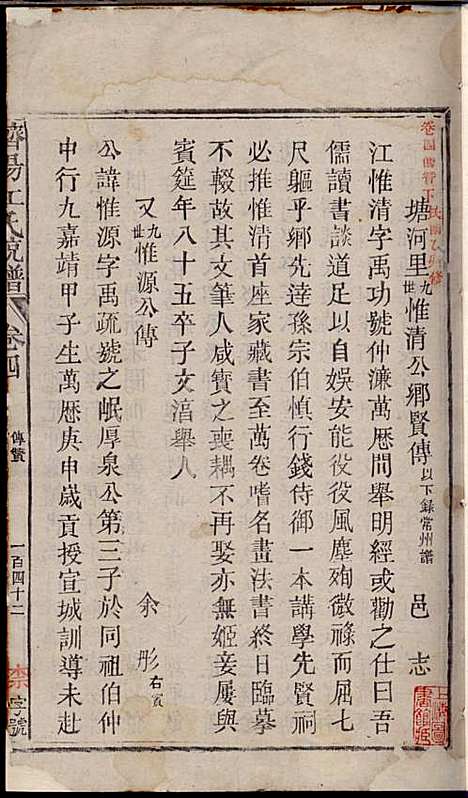 塘河里九世惟清公鄉賢傳以下錄常州譜 邑志
江惟清字禹功號仲濂萬歷間舉明經或勸之仕曰吾
儒讀書談道足以自娛安能役役風塵殉微祿而屈七
尺軀乎鄉先達孫宗伯慎行錢侍御一本講學先賢祠
必推惟清首座家藏書至萬卷嗜名畫法書終日臨摹
不輟故其文筆人咸寶之喪耦不再娶亦無姬妾屢與
賓筵年八十五卒子文涫舉人
又九世惟源公傳 余彤右貢
公諱惟源字禹疏號之岷厚泉公第三子於同祖伯仲
中行九嘉靖甲子生萬歷庚申歲貢授宣城訓導未赴
濟陽江氏統譜 卷四 傳贊 一百四十二 字號